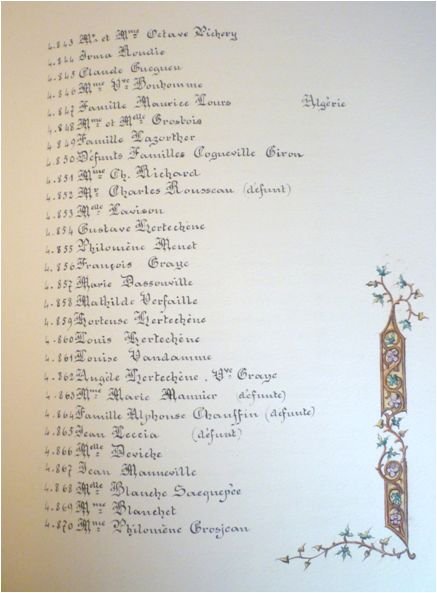 4.843 Mr et Mme Octave Vichery
4.844 Irma Roudie
4.845 Claude Gueguen
4.846 Mme Vve Bonhomme
4.847 Famille Maurice Lours Algérie
4.848 Mme et Melle Grosbois
4.849 Famille Lazorther
4.850 Défunts Familles Cogueville Giron
4.851 Mme Ch. Richard
4.852 Mr Charles Rousseau (défunt)
4.853 Melle Lavison
4.854 Gustave Hertechène
4.855 Philomène Menet
4.856 François Graye
4.857 Marie Dassonville
4.858 Mathilde Verfaille
4.859 Hortense Hertechène
4.860 Louis Hertechène
4.861 Louise Vandamme
4.862 Angèle Hertechène, Vve Graye
4.863 Mme Marie Mannier (défunte)
4.864 Famille Alphonse Chauffin (défunte)
4.865 Jean Leccia (défunt)
4.866 Melle Deviche
4.867 Jean Manneville
4.868 Melle Blanche Sacquepée
4.869 Mme Blanchet
4.870 Mme Philomène Grosjean